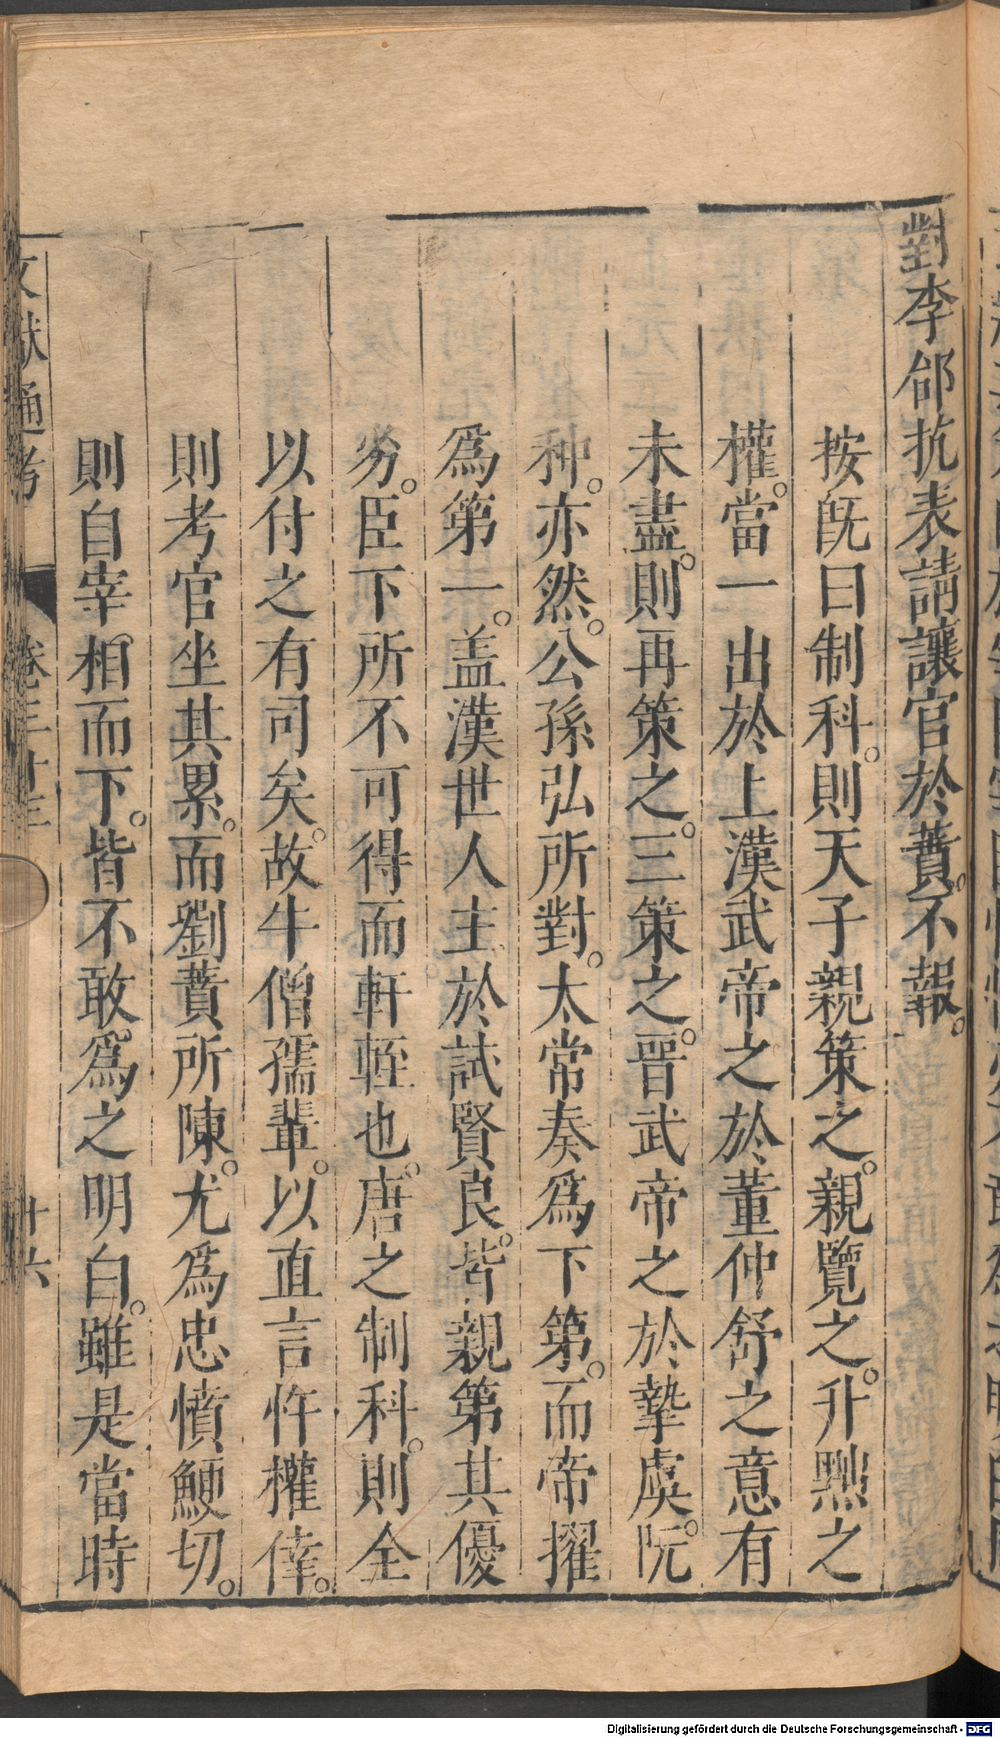 對李郃抗表請讓官於蕡。不報。
按旣曰制科。則天子親策之。親覽之。升黜之
權。當一出於上漢武帝之於董仲舒之意有
未盡。則再策之。三策之。晋武帝之於摯虞。阮
种。亦然。公孫弘所對。太常奏爲下第。而帝擢
爲第一。盖漢世人主於試賢良。皆親第其優
劣。臣下所不可得而軒輊也。唐之制科。則全
以付之有司矣。故牛僧孺輩。以直言忤權倖。
則考官坐其累。而劉蕡所陳。尤爲忠憤鯁切。
則自宰相而下。皆不敢爲之明白。雖是當時
文獻通考 卷三十三 十六
Digitalisierung gefördert durch die Deutsche Forschungsgemeinschaft - DFG